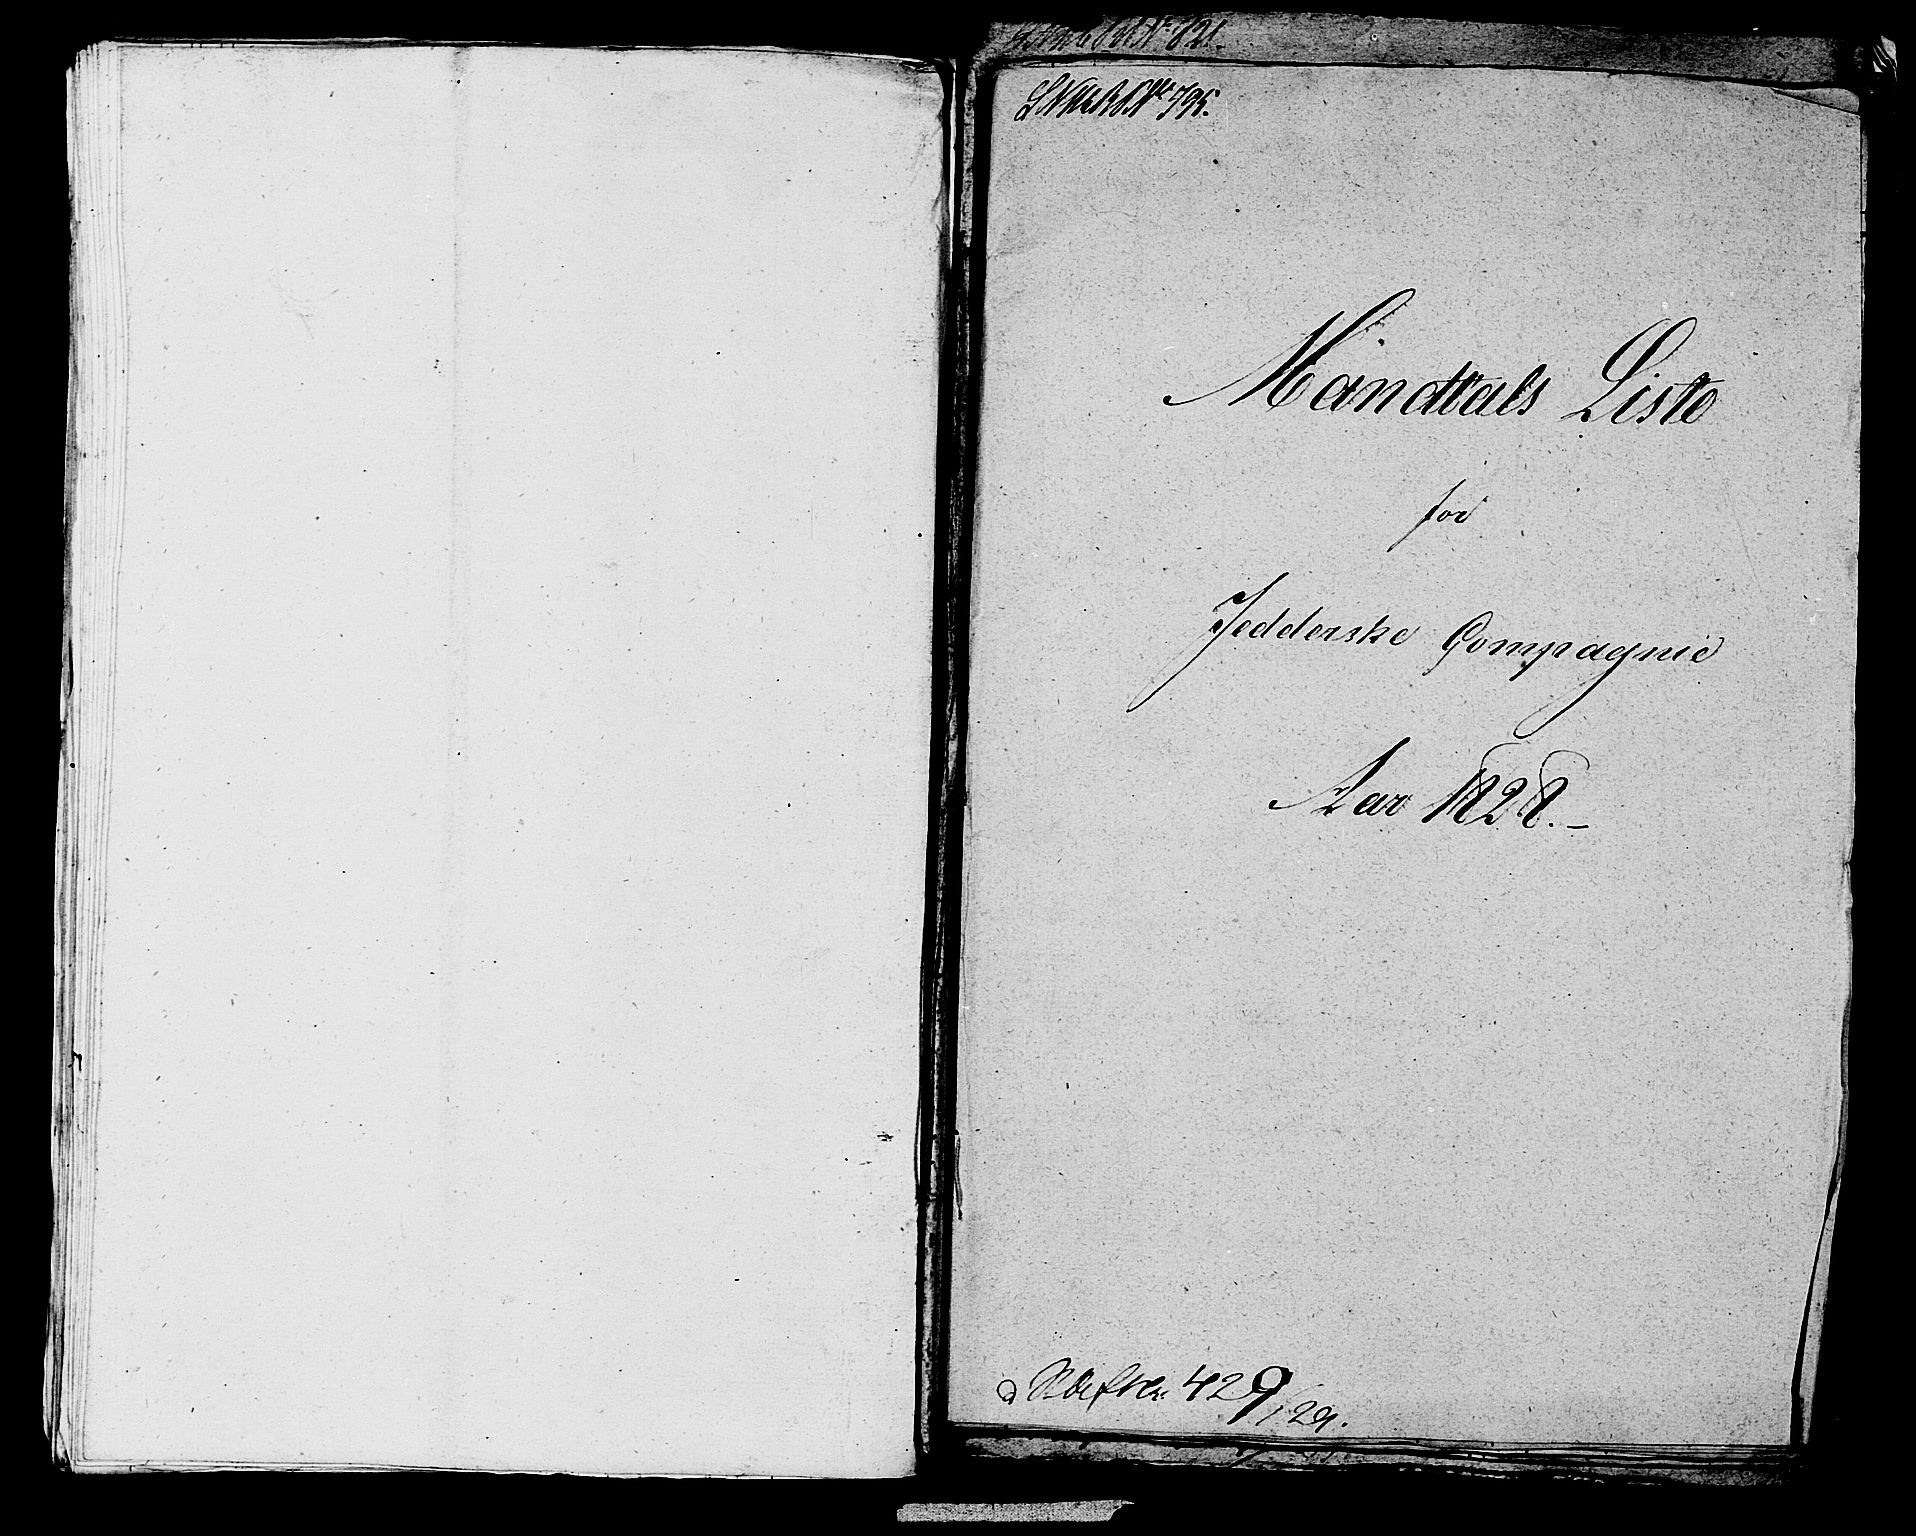 No 795.
Mandtals Liste
for
Jedderske Compagnie
Aar 1828.-
429/29.